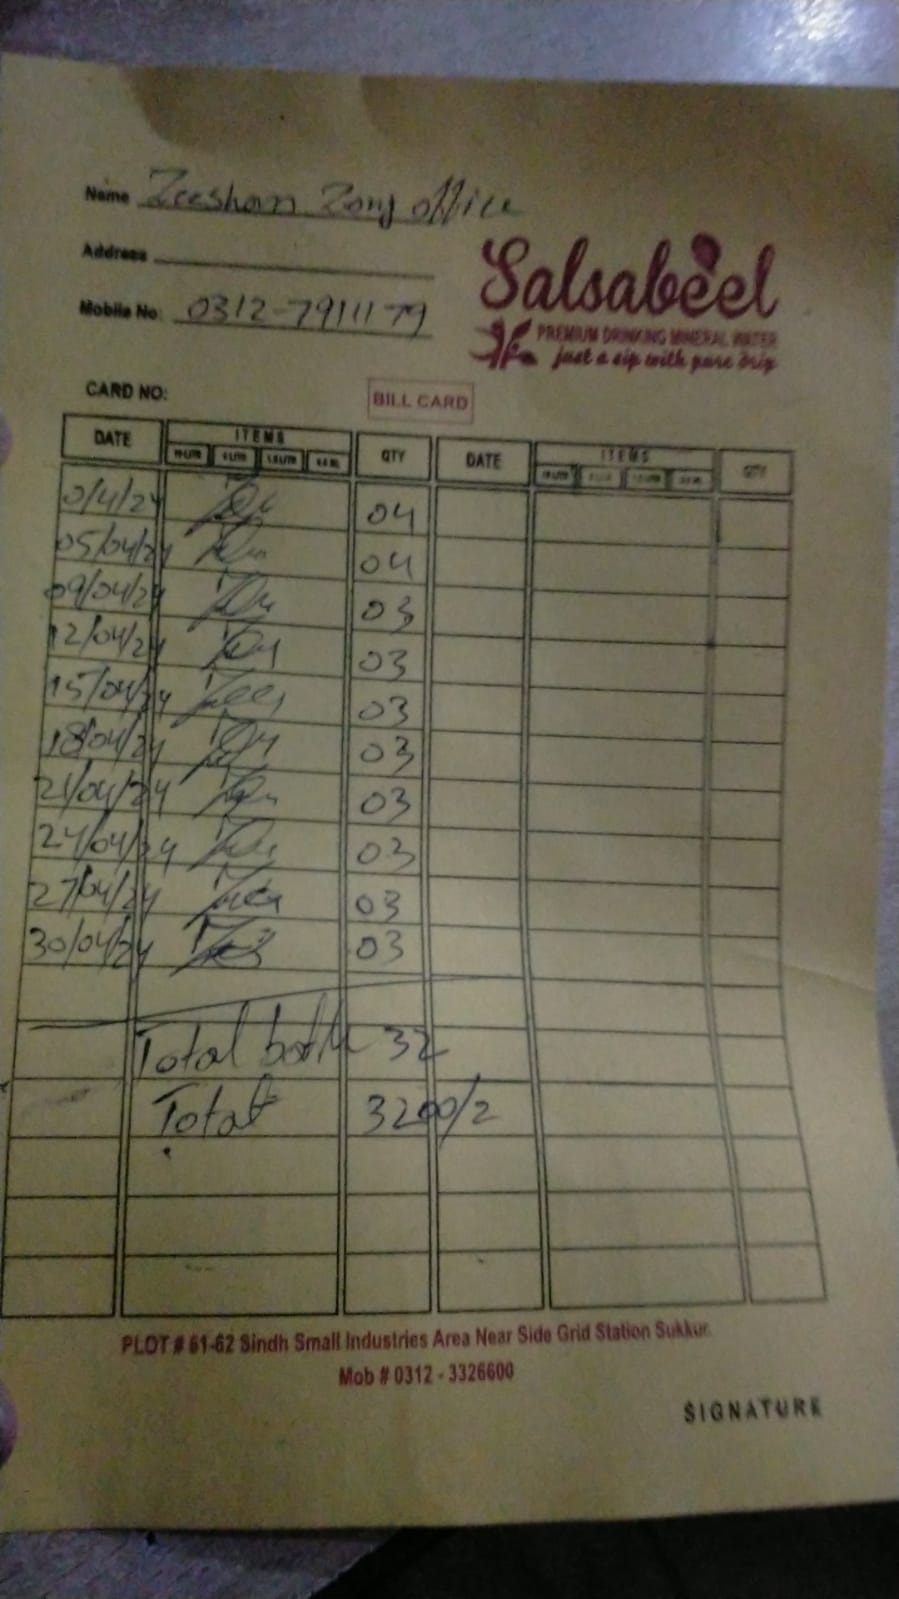 Name Zeeshan Zong office
Address
Mobile No: 0312-7911179
Salsabeel
PREMIUM DRINKING MINERAL WATER
just a sip with pure drip
CARD NO:
BILL CARD
DATE ITEMS QTY DATE ITEMS QTY
0/4/24 04
05/04/24 04
09/04/24 03
12/04/24 03
15/04/24 03
18/04/24 03
21/04/24 03
24/04/24 03
27/04/24 03
30/04/24 03
Total 32
Total 3200/2
PLOT # 61-62 Sindh Small Industries Area Near Side Grid Station Sukkur.
Mob # 0312 - 3326600
SIGNATURE